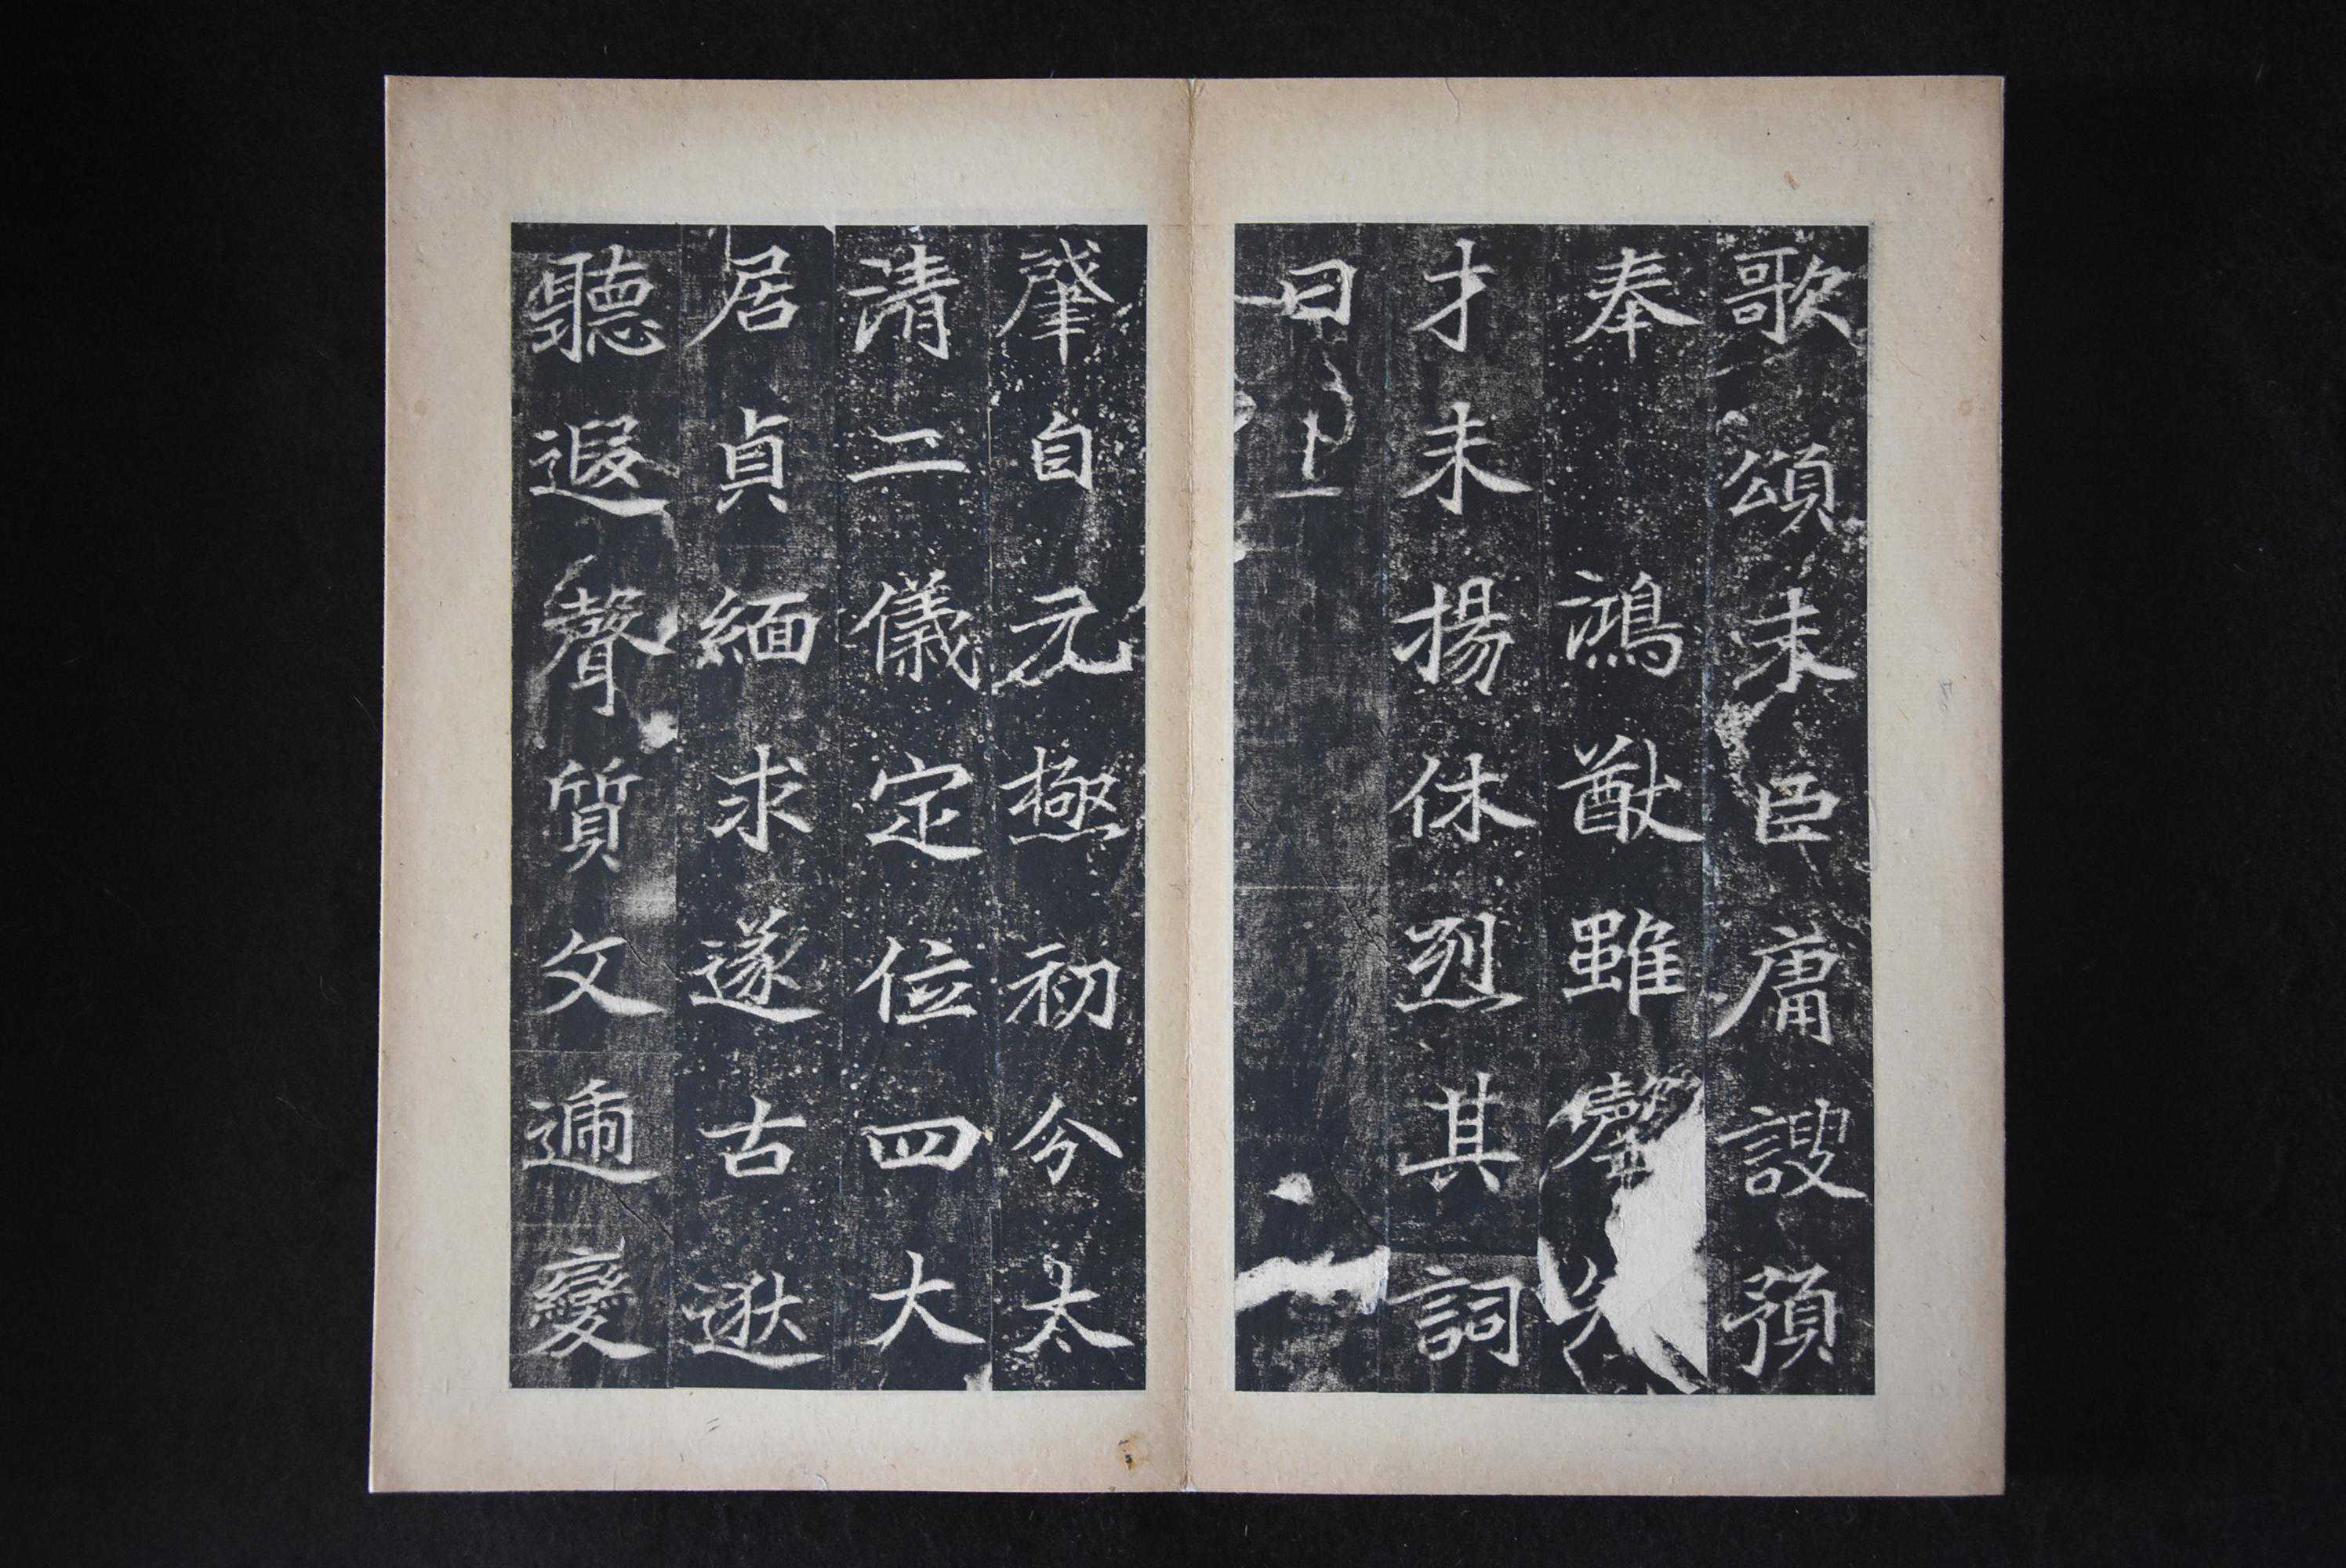 歌頌末臣庸謏預
奉鴻猷雖罄
才未揚休烈其詞
曰上
肇自元極初分太
清二儀定位四大
居貞緬求遂古逖
聽遐聲質文遞變